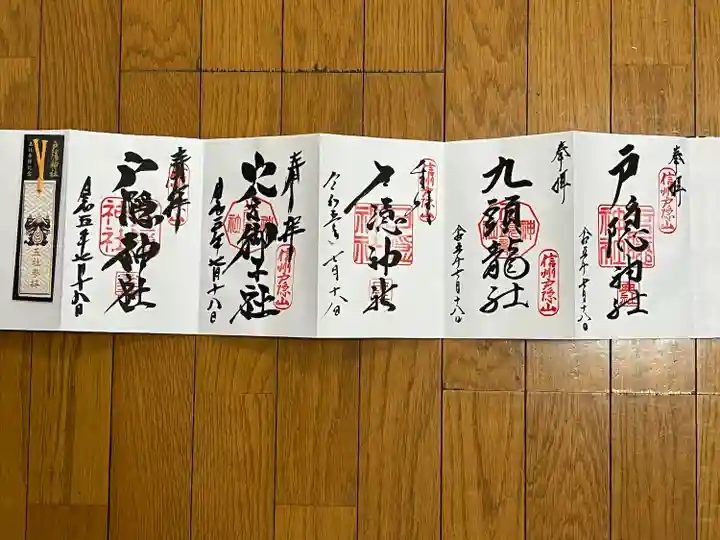 奉拝
信州戸隠山
戸隠神社
令和五年七月十八日
奉拝
九頭龍社
信州戸隠山
令和五年七月十八日
奉拝
信州戸隠山
戸隠神社
令和五年七月十八日
奉拝
火之御子社
信州戸隠山
令和五年七月十八日
奉拝
戸隠神社
令和五年七月十八日
戸隠神社
五社参拝記念
五社参拝